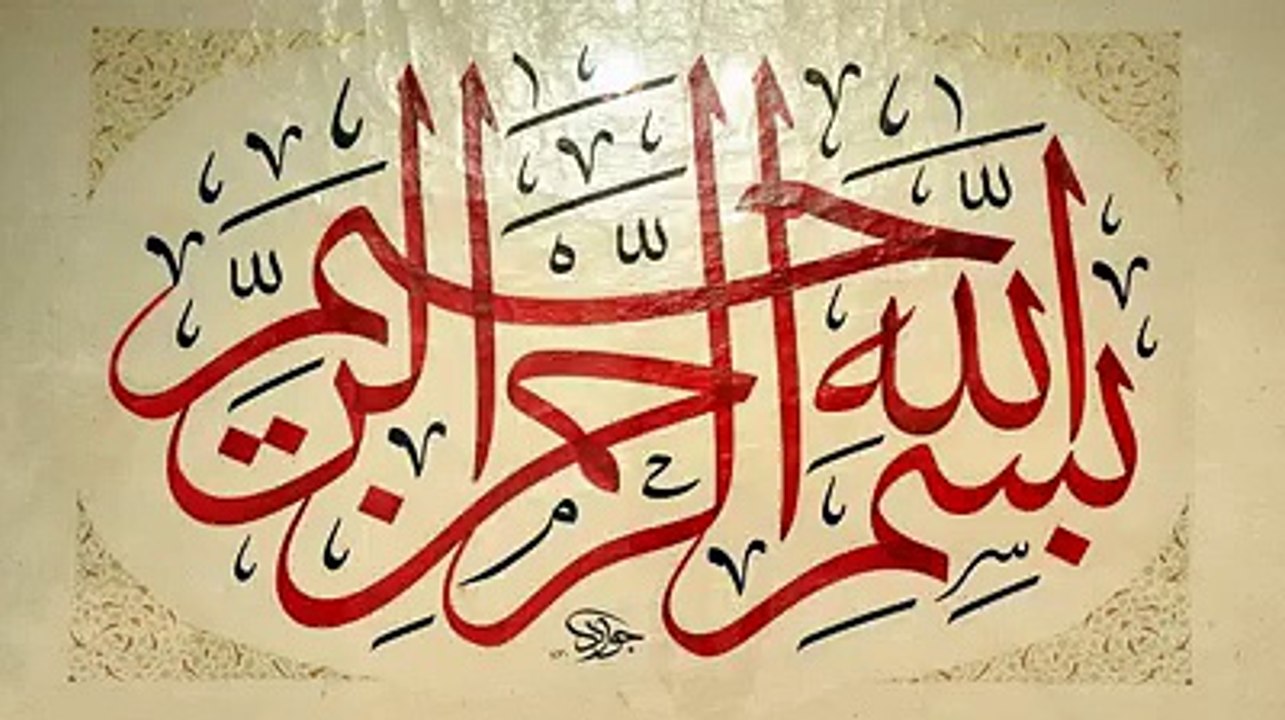 بِسْمِ اللّٰهِ الرَّحْمٰنِ الرَّحِيْمِ
جواد